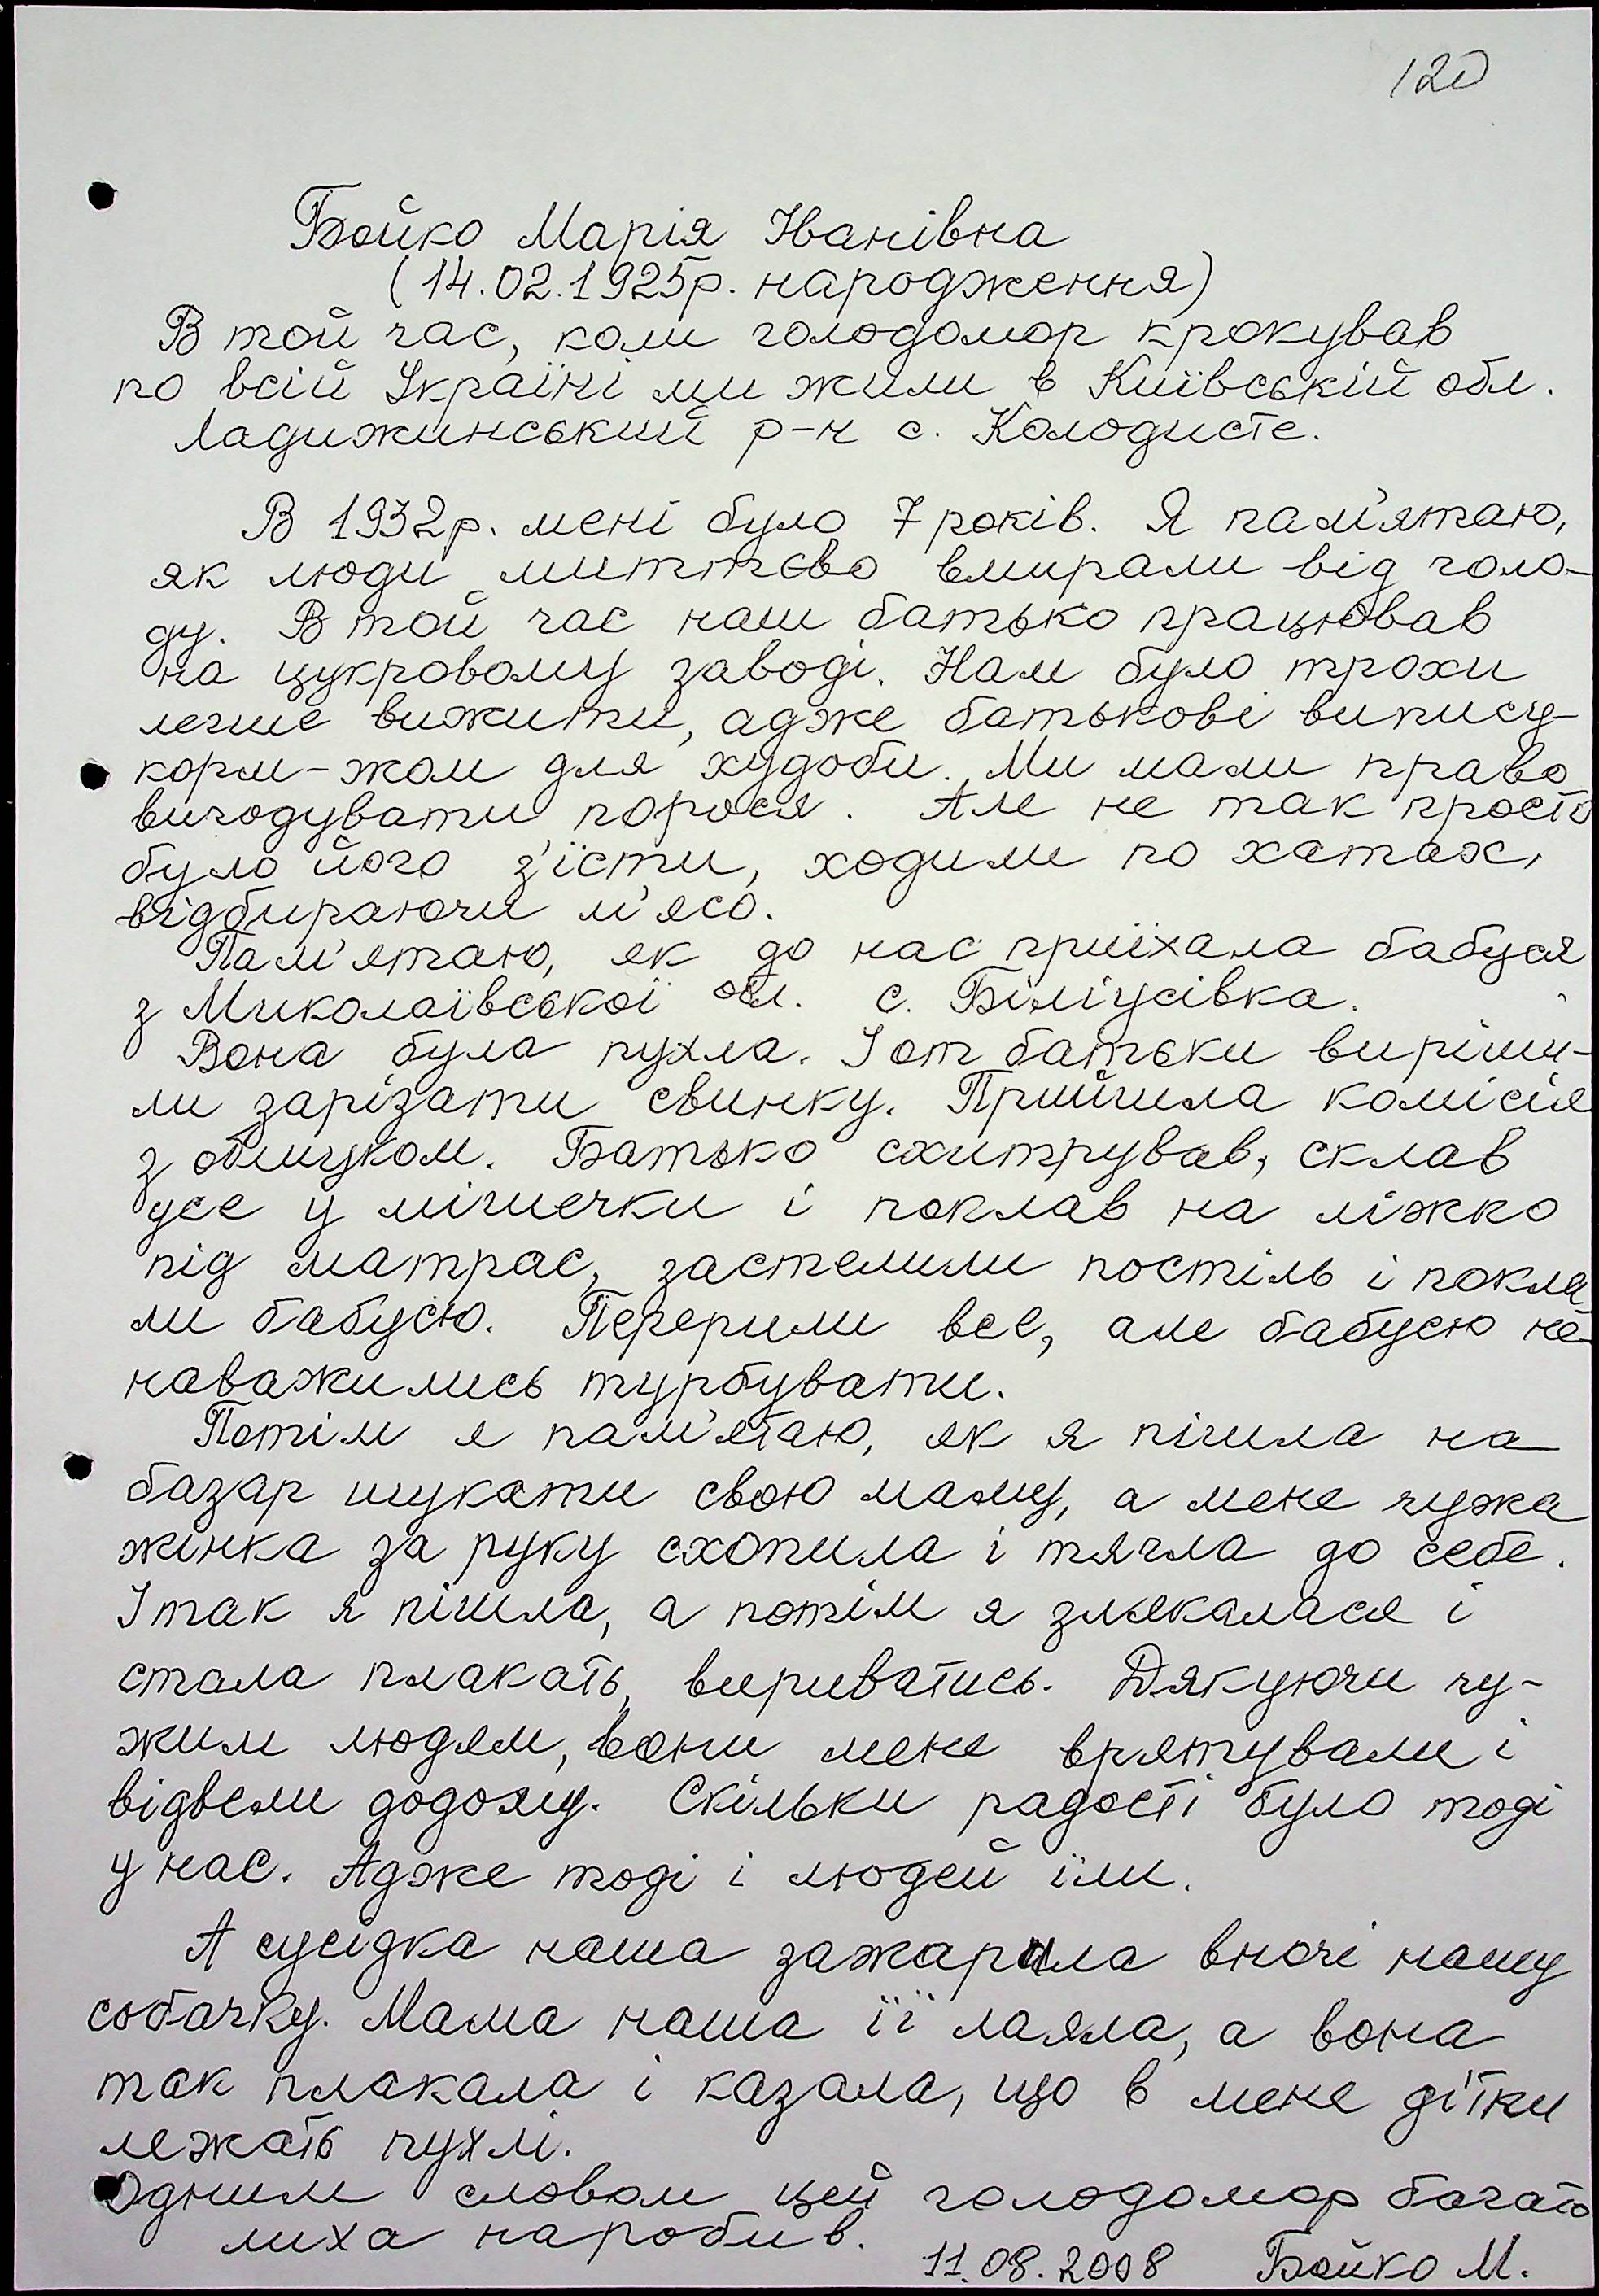 120
Бойко Марія Іванівна
(14.02.1925р. народження)
В той час, коли голодомор крокував
по всій Україні ми жили в Київській обл.
Ладижинський р-н с. Колодисте.
В 1932р. мені було 7 років. Я пам'ятаю,
як люди миттєво вмирали від голо-
ду. В той час наш батько працював
на цукровому заводі. Нам було трохи
легше вижити, адже батькові випису-
корм-жом для худоби. Ми мали право
вигодувати порося. Але не так просто
було його з'їсти, ходили по хатах,
відбираючи м'ясо.
Пам'ятаю, як до нас приїхала бабуся
з Миколаївської обл. с. Білоусівка.
Вона була пухла. І от батьки виріши-
ли зарізати свинку. Прийшла комісія
з обшуком. Батько схитрував, склав
усе у мішечки і поклав на ліжко
під матрас, застелили постіль і покла
ли бабусю. Перерили все, але бабусю не
наважились турбувати.
Потім я пам'ятаю, як я пішла на
базар шукати свою маму, а мене чужа
жінка за руку схопила і тягла до себе.
І так я пішла, а потім я злякалася і
стала плакать, вириватись. Дякуючи чу-
жим людям, вони мене врятували і
відвели додому. Скільки радості було тоді
у нас. Адже тоді і людей їли.
А сусідка наша зажарила вночі нашу
собачку. Мама наша її лаяла, а вона
так плакала і казала, що в мене дітки
лежать пухлі.
Одним словом цей голодомор багато
лиха наробив.
11.08.2008 Бойко М.